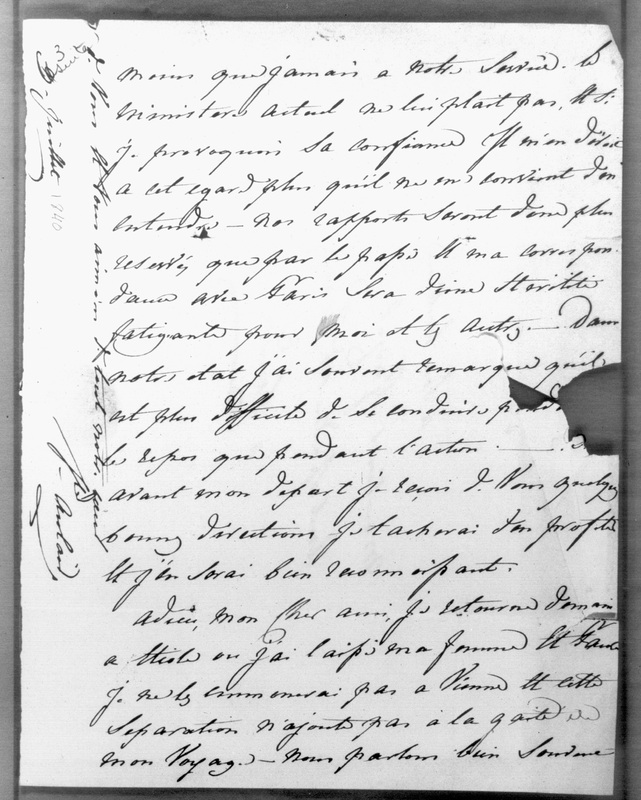 moins que jamais a notre Service. le
ministere actuel ne lui plait pas, et Si
je provoquois Sa confiance Il m'en diroit
a cet egard plus qu'il ne me convient d'en
entendre — nos rapports Seront donc plus
reservés que par le passé et ma correspon-
dance avec Paris Sera d'une Sterilité
fatigante pour moi et les autres. — Dans
notre etat j'ai Souvent remarqué qu'il
est plus difficile de Se conduire pend
le repos que pendant l'action. —
avant mon depart je reçois de Vous quelques
bonnes directions je tacherai d'en profiter
et j'en Serai bien reconnoissant.
adieu, mon Cher ami, je retourne demain
a ou j'ai laissé ma femme et
je ne les emmenerai pas a Vienne et cette
Separation n'ajoute pas à la gaité de
mon Voyage. — nous parlons bien Souvent
de Vous et Vous aimons de tout notre
3
Juillet 1840